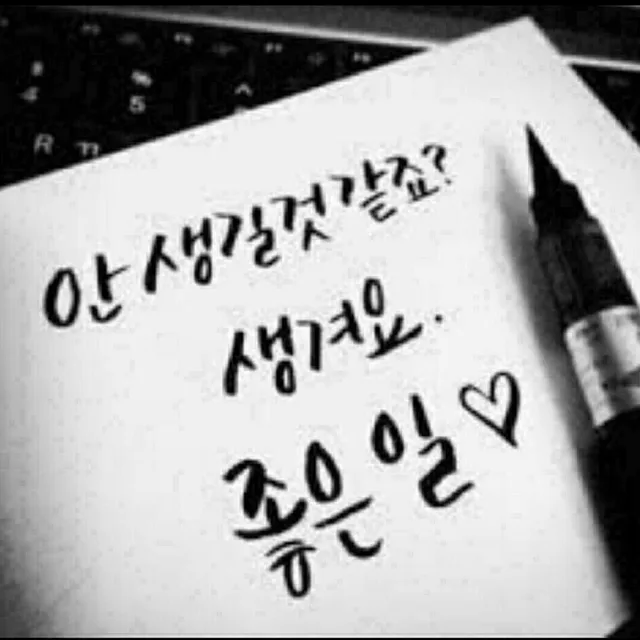 8
4
%
5
^
R ㄲ
안 생길것 같죠?
생겨요.
좋은 일♡